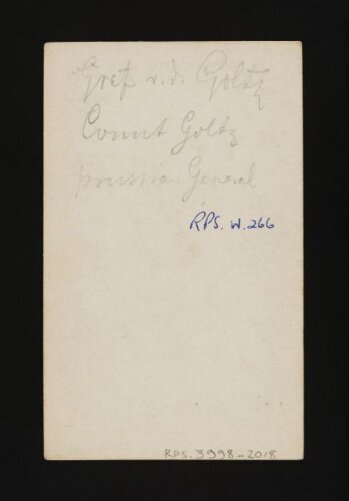 Graf v. d. Goltz
Count Goltz
prussian General
RPS. W. 266
RPS. 3998-2018